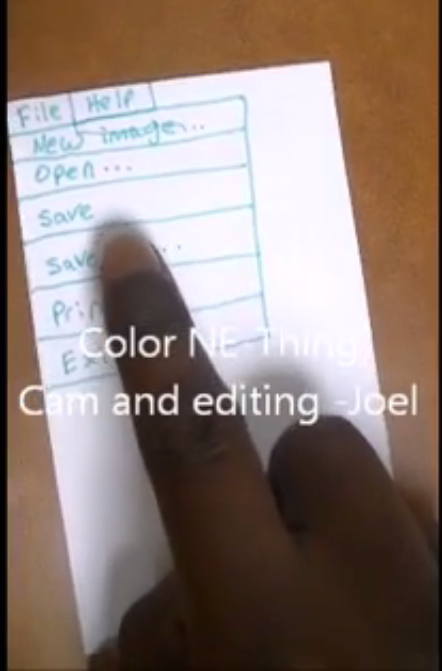 File Help
New image...
Open...
Save
Save
Color NE-Thing
Cam and editing -Joel